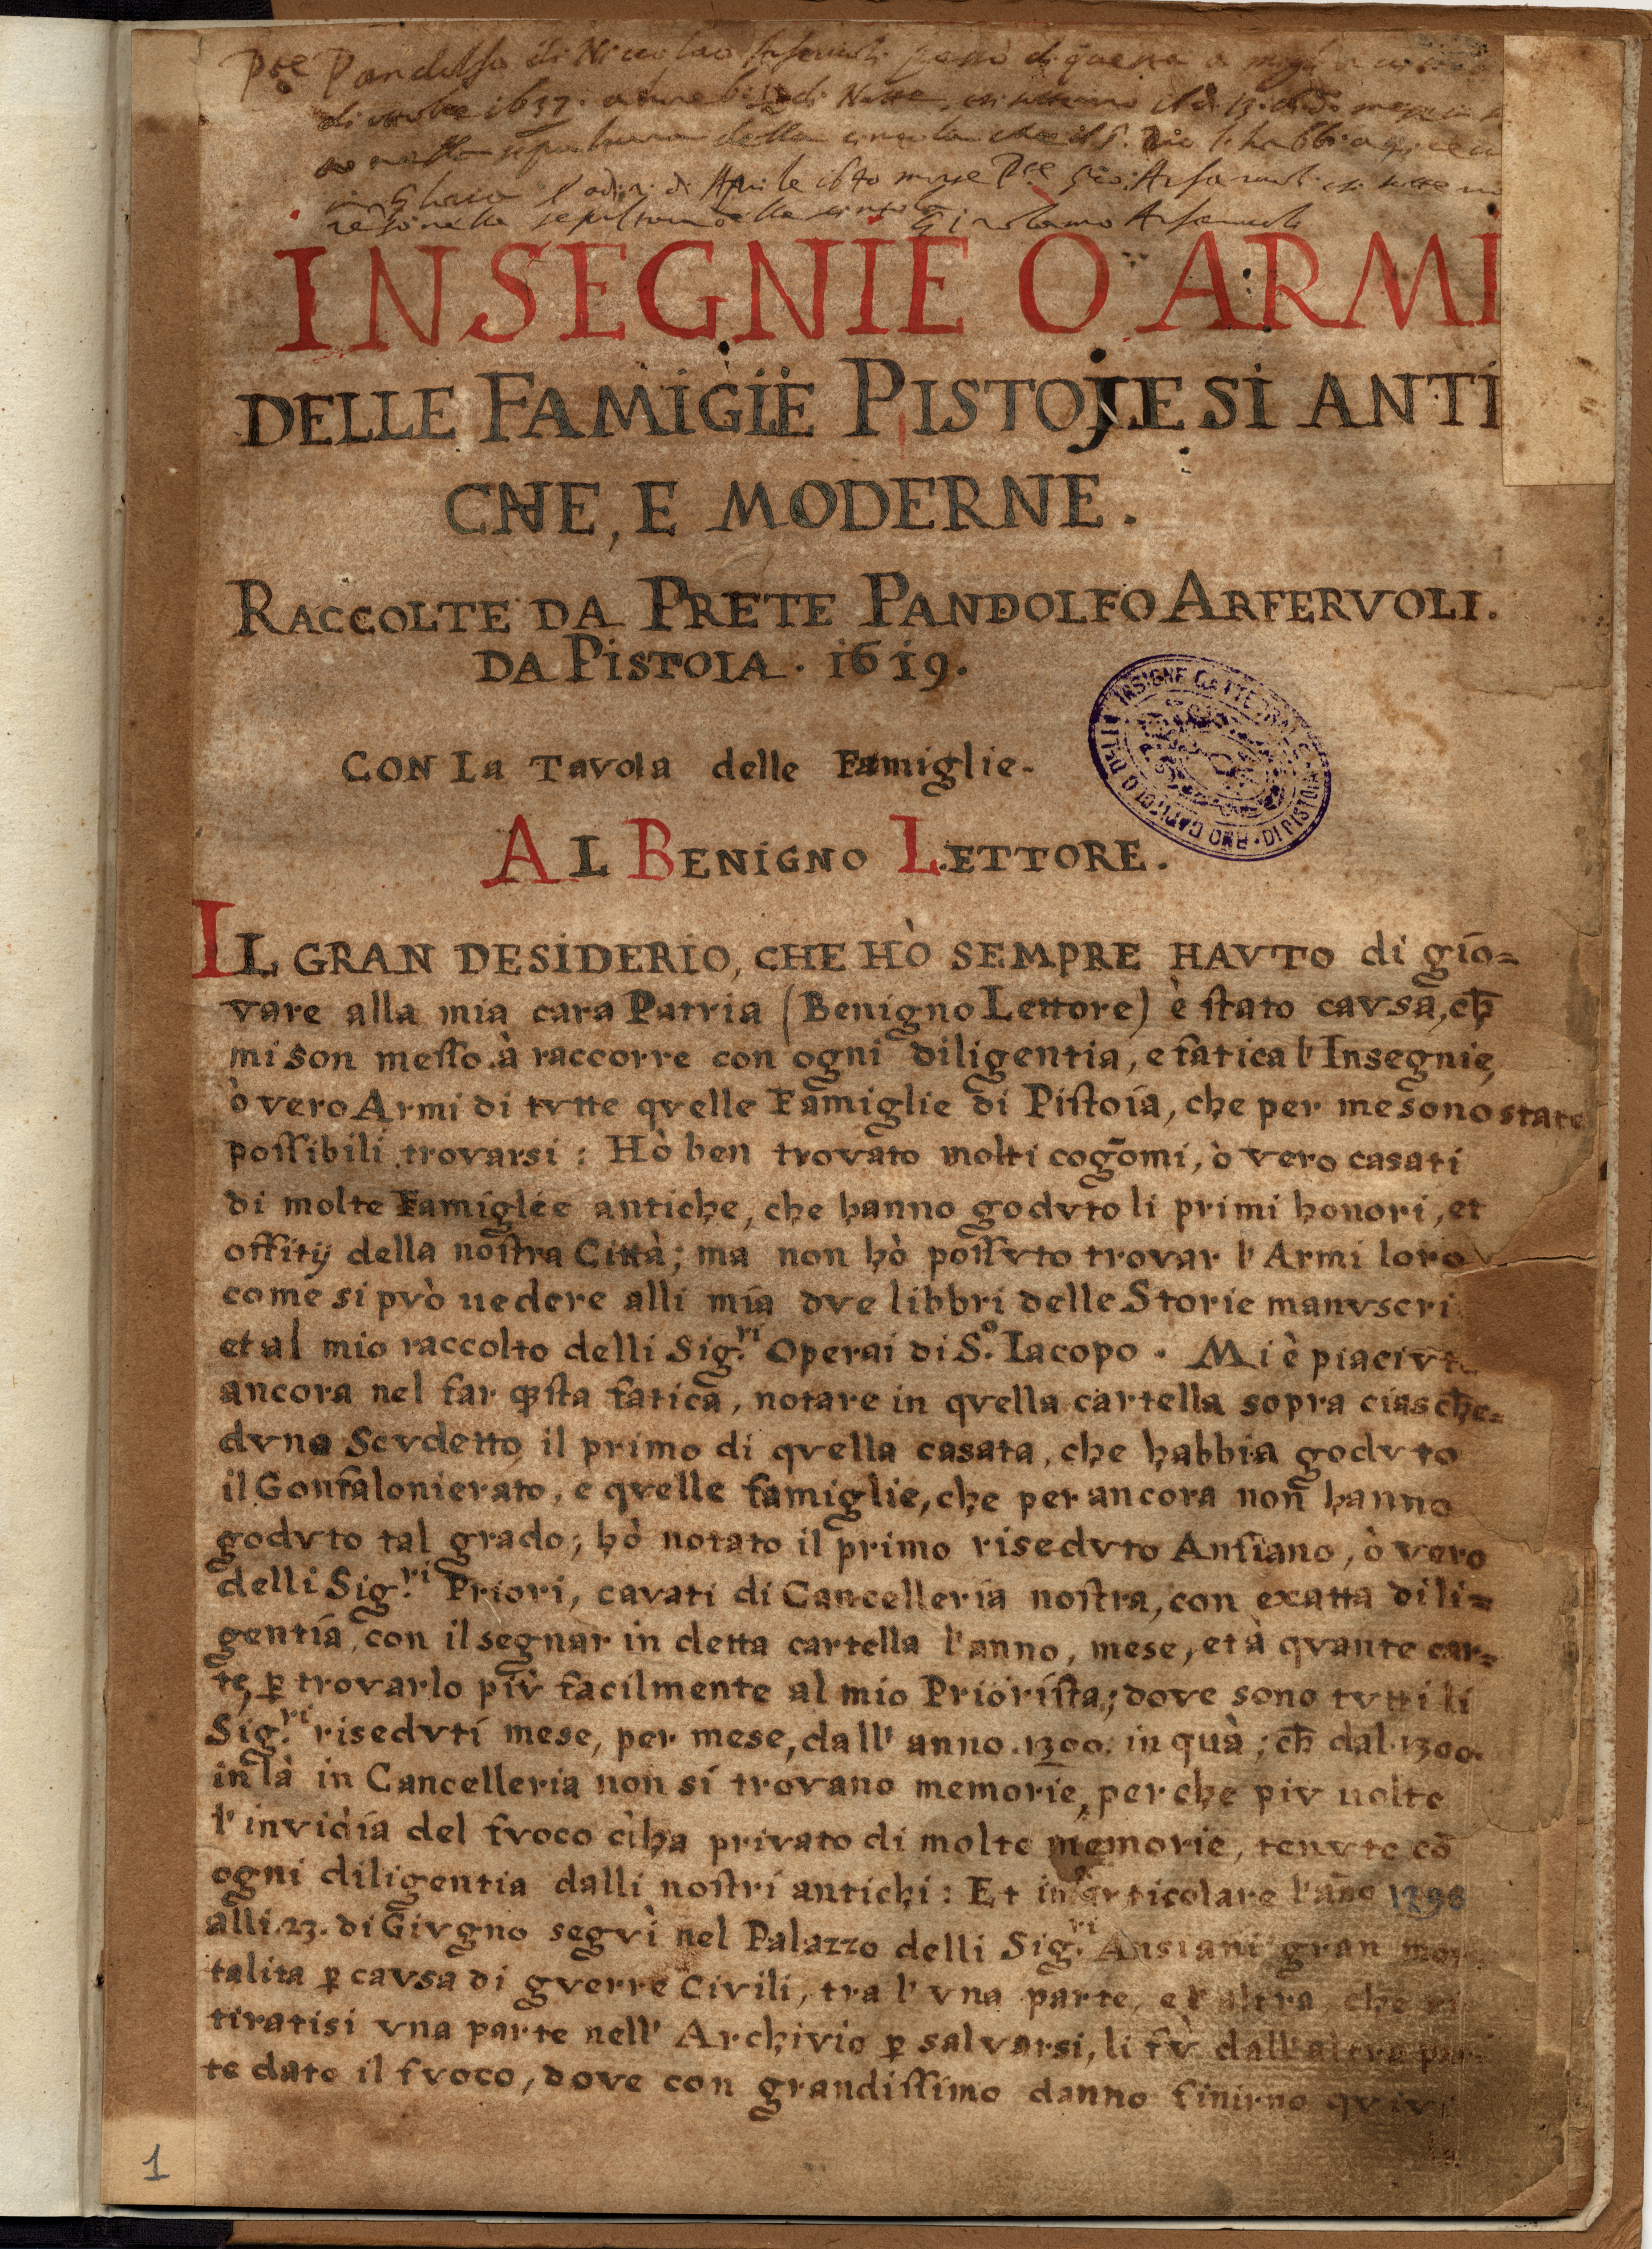 Pre Pandolfo di Niccolao Arfervoli passò di questa a
di 1637. a hore di Notte, il dì 13. di mese
sepultura della cintola che il S. Dio l'habbia
in gloria adi di Aprile 1640 morse Pre Gio: Arfaruoli
nella sepoltura della cintola. Girolamo Arferuoli
INSEGNIE O ARMI
DELLE FAMIGIE PISTOJESI ANTI
CHE, E MODERNE.
RACCOLTE DA PRETE PANDOLFO ARFERVOLI.
DA PISTOIA. 1619.
CON La Tavola delle Famiglie.
INSIGNE CATTEDRALE DI PISTOIA · RMO CAPITOLO DELL
AL BENIGNO LETTORE.
IL GRAN DESIDERIO, CHE HÒ SEMPRE HAVTO di gio=
vare alla mia cara Patria (Benigno Lettore) è stato cavsa, ch̄
mi son messo à raccorre con ogni diligentia, e fatica l'Insegnie,
ò vero Armi di tvtte qvelle Famiglie di Pistoia, che per me sono state
possibili trovarsi: Hò ben trovato molti cogn̄omi, ò vero casati
di molte Famiglie antiche, che hanno godvto li primi honori, et
offitij della nostra Città; ma non hò possvto trovar l'Armi loro
come si pvò uedere alli mia dve libbri delle Storie manvscri
et al mio raccolto delli Sig.ri Operai di S.o Iacopo. Mi è piacivto
ancora nel far qsta fatica, notare in qvella cartella sopra ciasche=
dvno Scvdetto il primo di qvella casata, che habbia godvto
il Gonfalonierato, e qvelle famiglie, che per ancora non hanno
godvto tal grado; hò notato il primo risedvto Ansiano, ò vero
delli Sig.ri Priori, cavati di Cancelleria nostra, con exatta dili=
gentia, con il segnar in detta cartella l'anno, mese, et à qvante car=
te, ꝑ trovarlo piv̀ facilmente al mio Priorista; dove sono tvtti li
Sig.ri risedvti mese, per mese, dall' anno .1300. in quà; ch̄ dal .1300.
in là in Cancelleria non si trovano memorie, perche piv uolte
l'invidia del fvoco ci ha privato di molte memorie, tenvte cō
ogni diligentia dalli nostri antichi: Et in particolare l'año 1296
alli .23. di Givgno segvì nel Palazzo delli Sig.ri Ansiani gran mor
talita ꝑ cavsa di gverre Civili, tra l' vna parte, e l'altra, che ri
tiratisi vna parte nell' Archivio ꝑ salvarsi, li fv̀ dall'altra par
te dato il fvoco, dove con grandissimo danno finirno qvivi
1